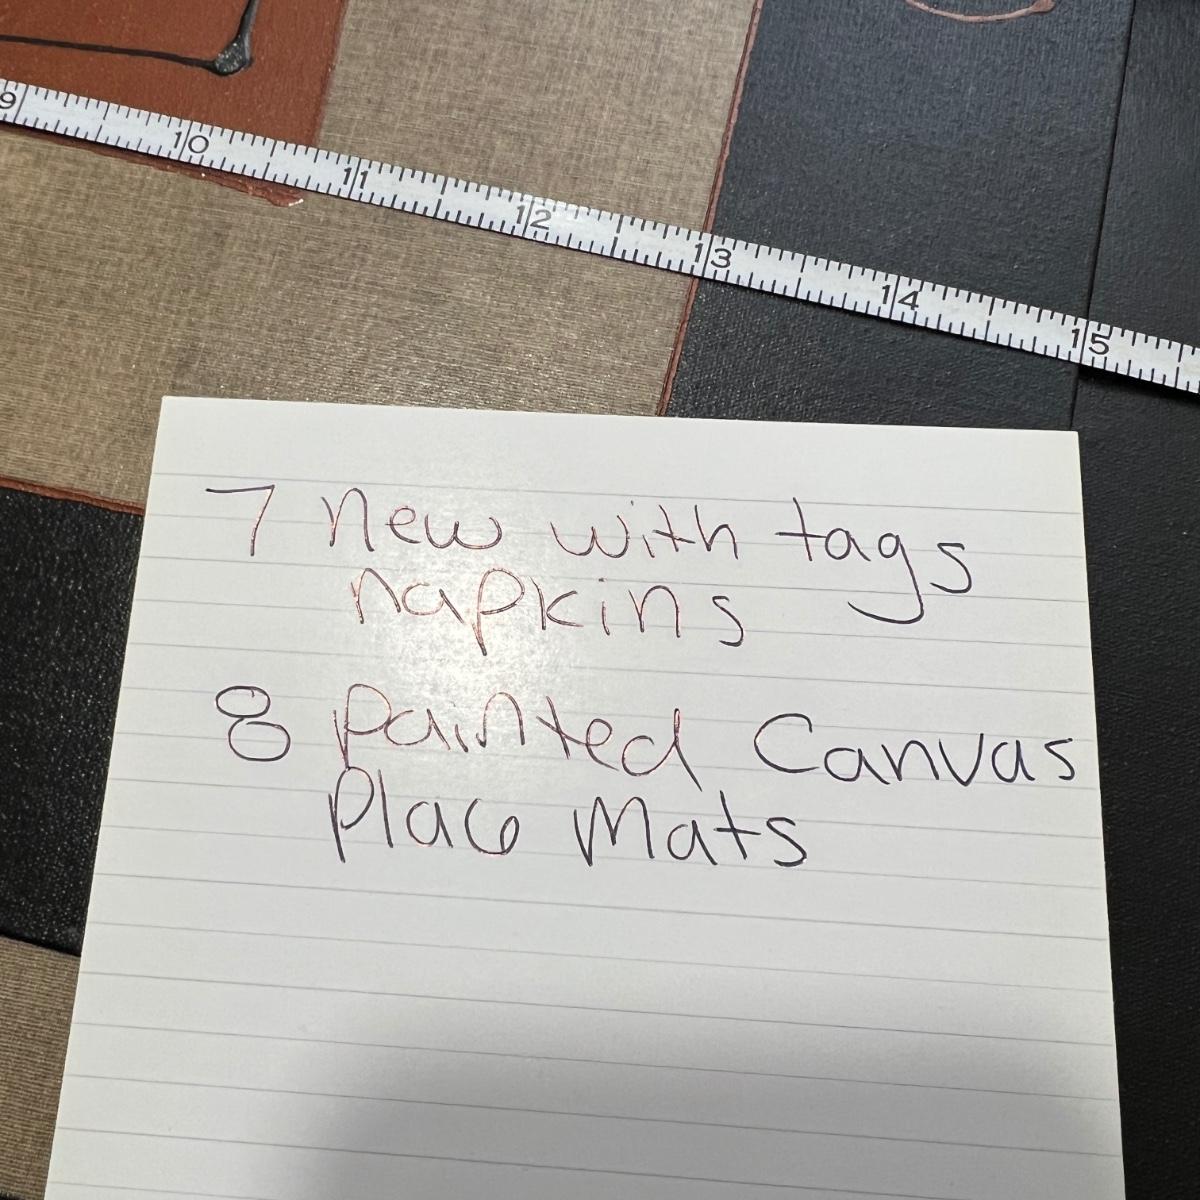 9 10 11 12 13 14 15
7 new with tags
napkins
8 Painted Canvas
Place Mats